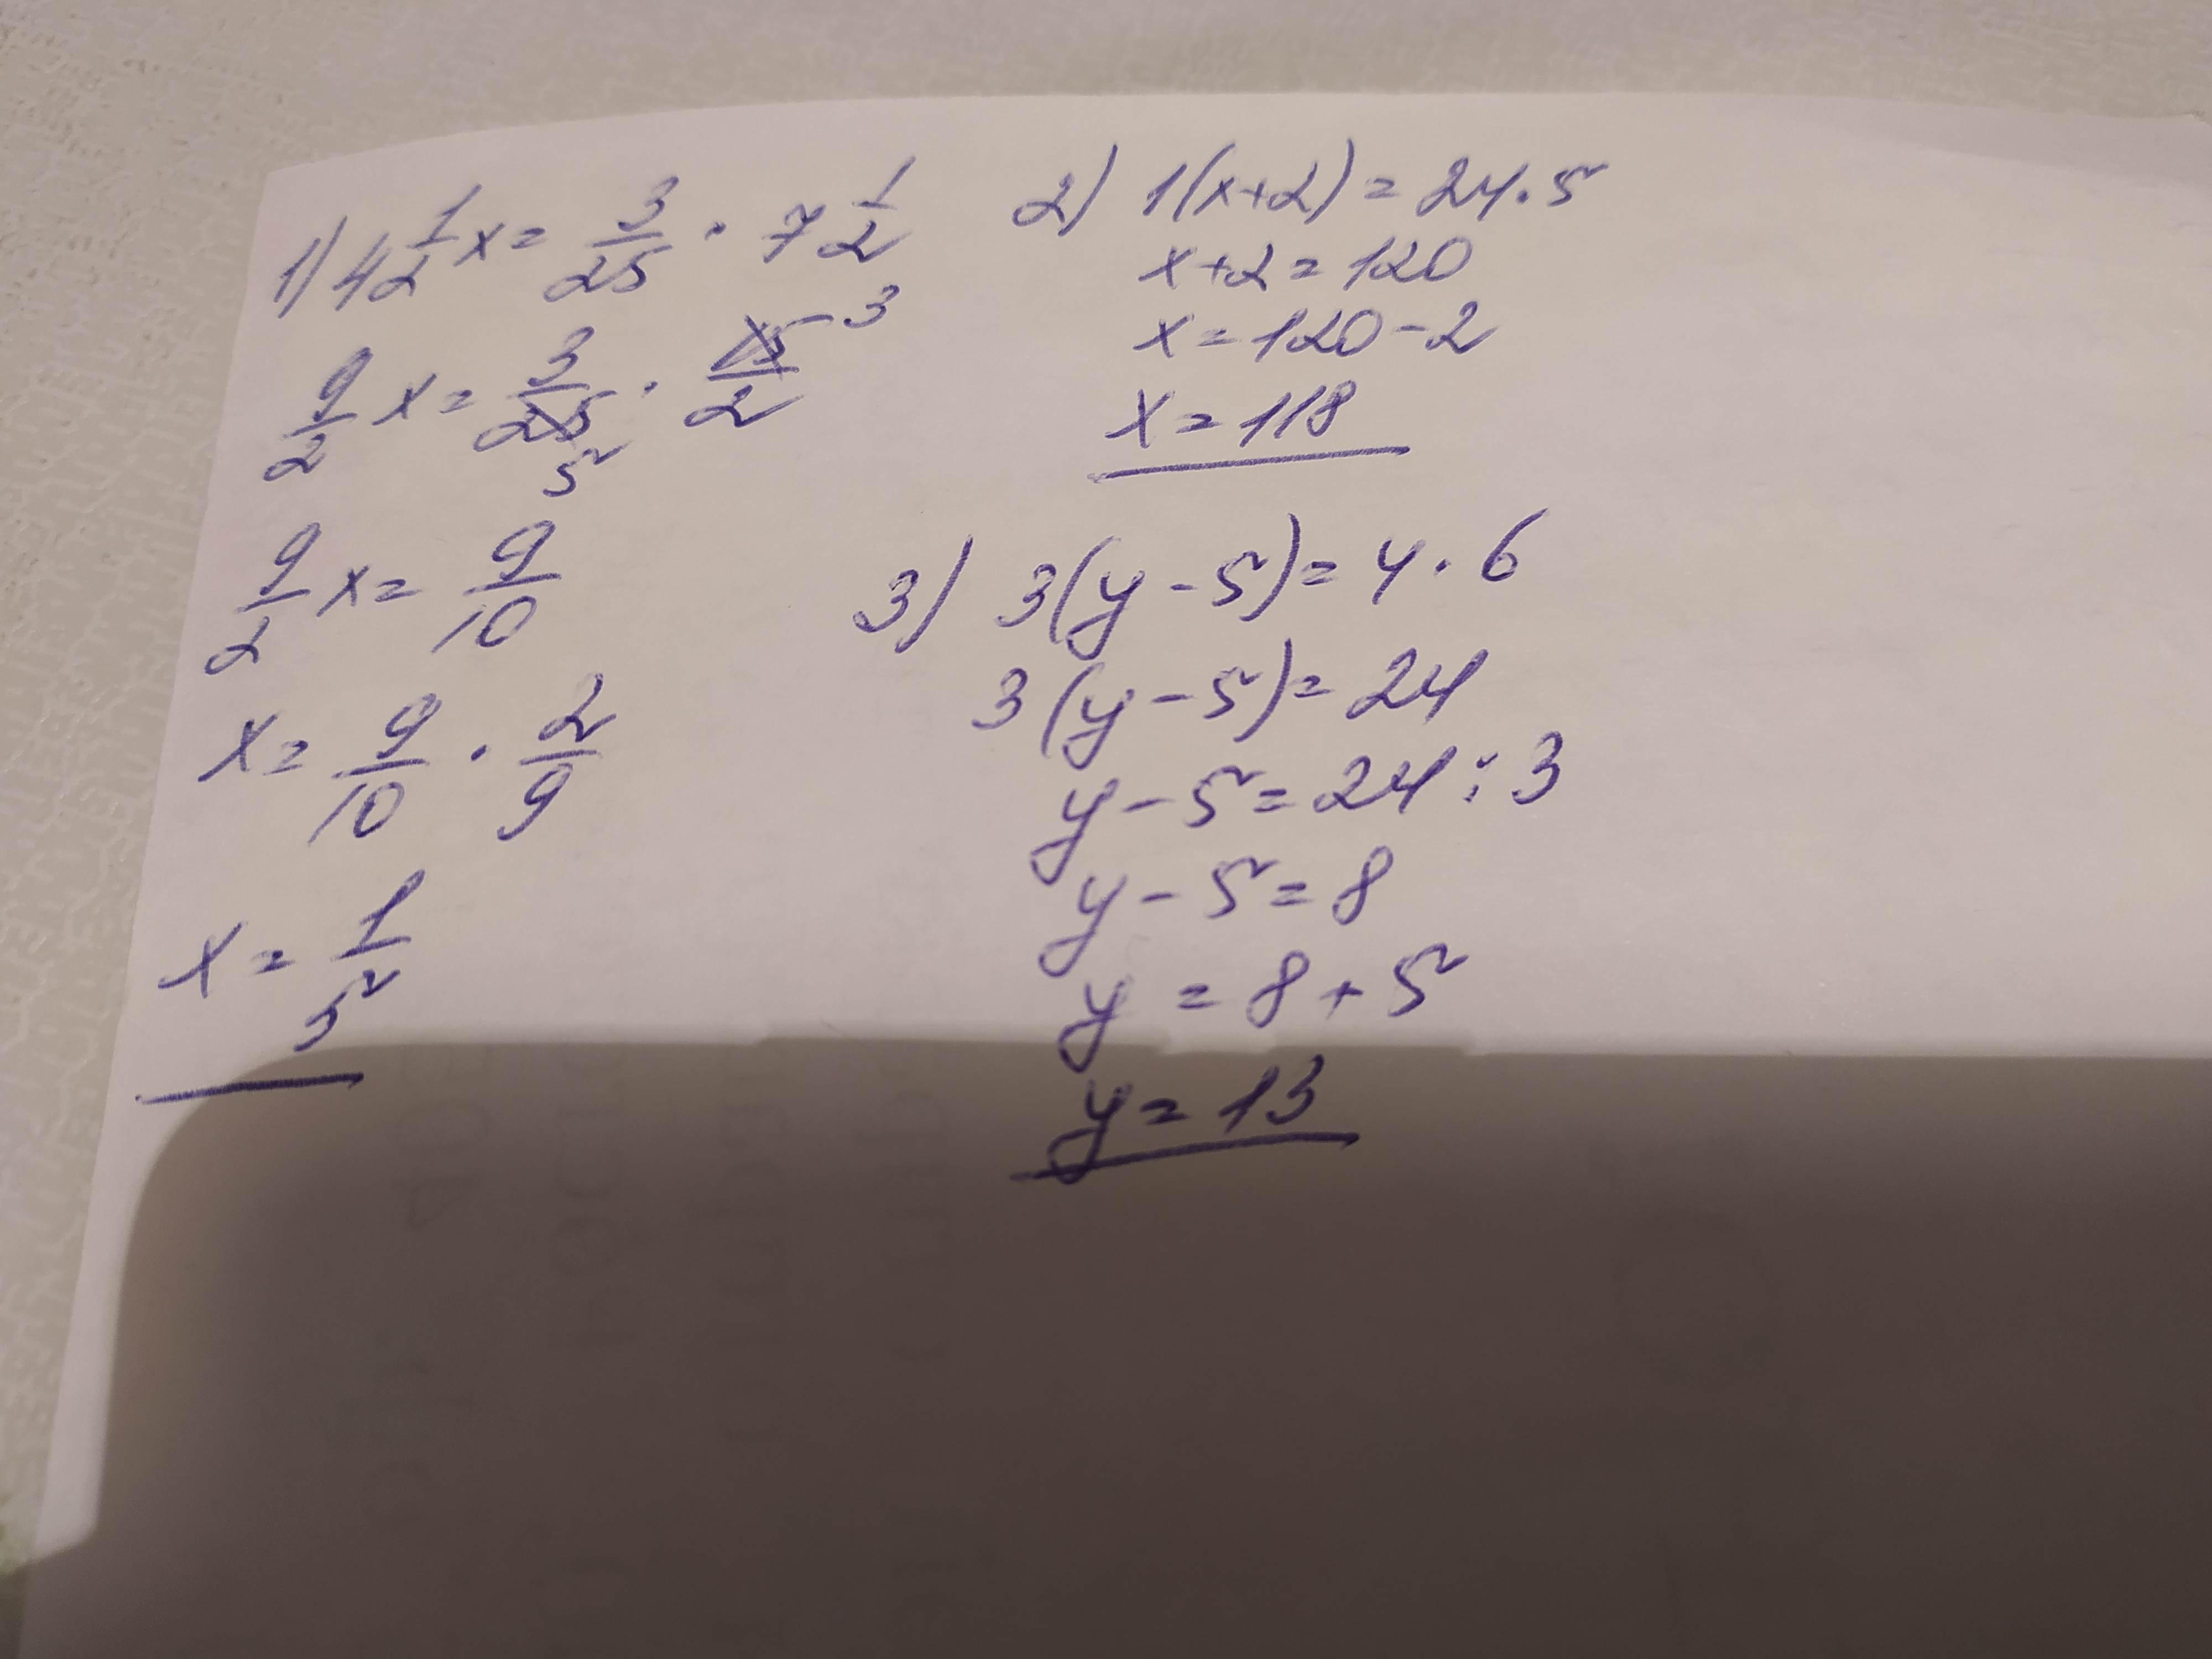 1) 4 1/2 x = 3/25 · 7 1/2
9/2 x = 3/25 5 · 15/2 3
9/2 x = 9/10
x = 9/10 · 2/9
x = 1/5
2) 1(x+2) = 24 · 5
x + 2 = 120
x = 120 - 2
x = 118
3) 3(y - 5) = 4 · 6
3(y - 5) = 24
y - 5 = 24 : 3
y - 5 = 8
y = 8 + 5
y = 13